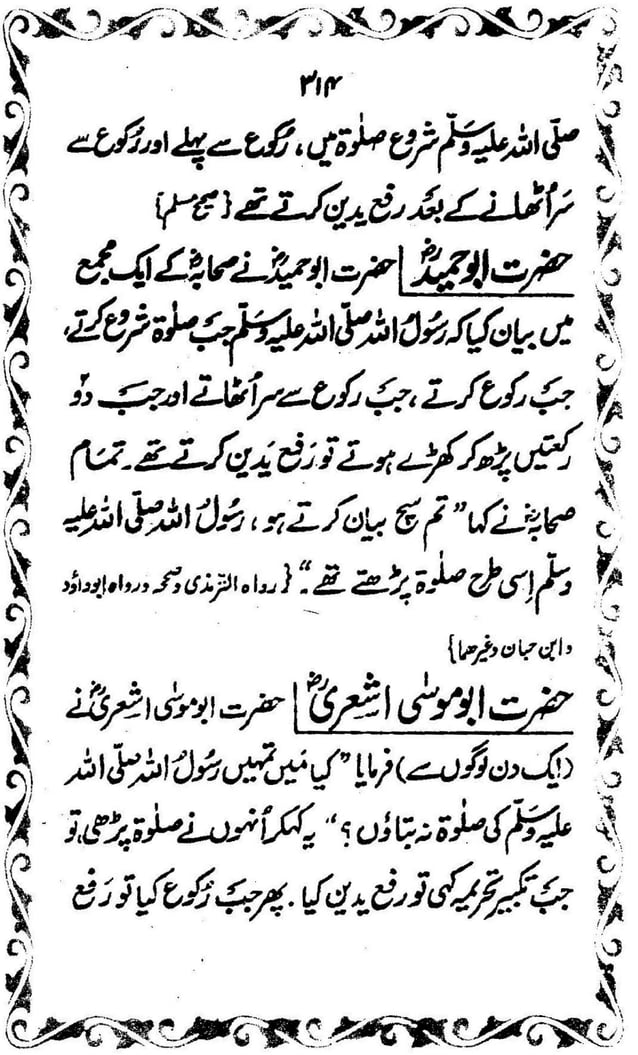 ۳۱۴
صلّی اللہ علیہ وسلّم شروع صلوٰۃ میں، رکوع سے پہلے اور رکوع سے
سر اُٹھانے کے بعد رفع یدین کرتے تھے {صحیح مسلم}
حضرت ابو حمیدؓ حضرت ابو حمیدؓ نے صحابہؓ کے ایک مجمع
میں بیان کیا کہ رسولُ اللہ صلّی اللہ علیہ وسلّم جب صلوٰۃ شروع کرتے،
جب رکوع کرتے، جب رکوع سے سر اُٹھاتے اور جب دوْ
رکعتیں پڑھ کر کھڑے ہوتے تو رفع یدین کرتے تھے۔ تمام
صحابہؓ نے کہا ”تم سچ بیان کرتے ہو، رسولُ اللہ صلّی اللہ علیہ
وسلّم اِسی طرح صلوٰۃ پڑھتے تھے۔“ {رواہ الترمذی وصححہ ورواہ ابوداؤد
وابن حبان وغیرھما}
حضرت ابو موسٰی اشعریؓ حضرت ابو موسٰی اشعریؓ نے
(ایک دن لوگوں سے) فرمایا ”کیا میں تمہیں رسولُ اللہ صلّی اللہ
علیہ وسلّم کی صلوٰۃ نہ بتاؤں؟“ یہ کہکر اُنہوں نے صلوٰۃ پڑھی، تو
جب تکبیر تحریمہ کہی تو رفع یدین کیا۔ پھر جب رُکوع کیا تو رفع